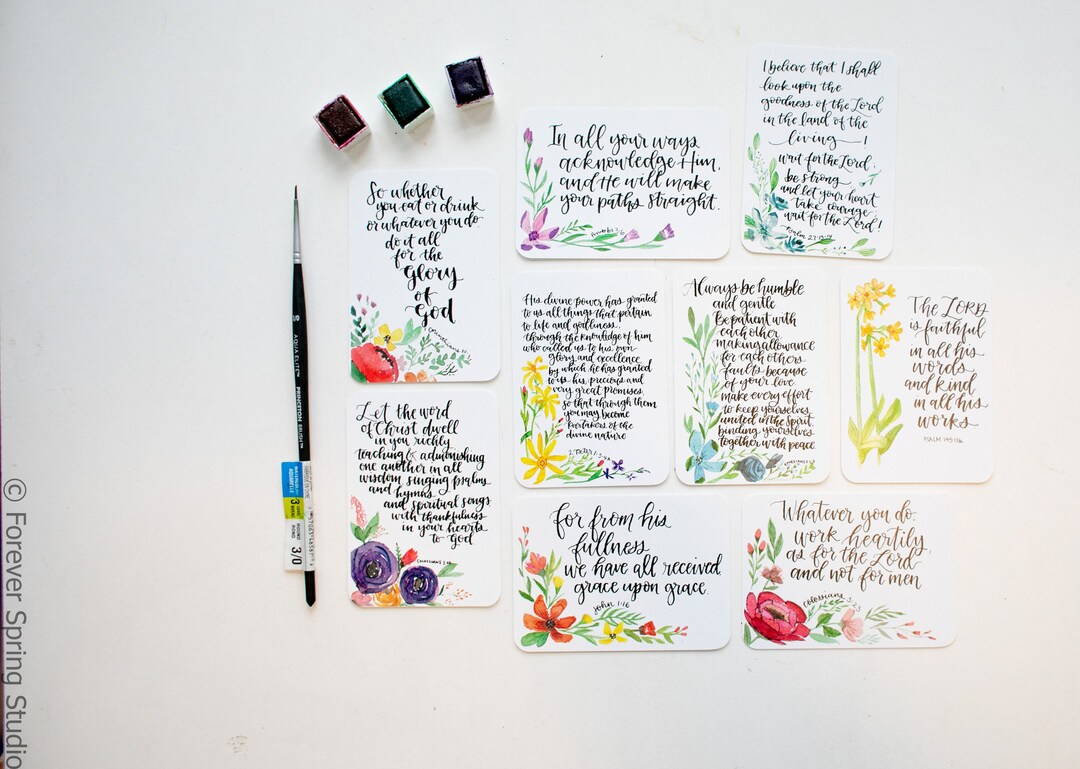 So whether
you eat or drink
or whatever you do
do it all
for the
Glory
of
God
In all your ways
acknowledge Him,
and He will make
your paths straight.
Proverbs 3:6
I believe that I shall
look upon the
goodness of the Lord
in the land of the
living!
wait for the Lord;
be strong
and let your heart
take courage
wait for the Lord!
Psalm 27:13-14
His divine power has granted
to us all things that pertain
to life and godliness,
through the knowledge of him
who called us to his own
glory and excellence
by which he has granted
to us his precious and
very great promises,
so that through them
you may become
partakers of the
divine nature
2 Peter 1:3-4
Always be humble
and gentle
Be patient with
each other
making allowance
for each others
faults because
of your love
make every effort
to keep yourselves
united in the Spirit
binding yourselves
together with peace
The LORD
is faithful
in all his
words
and kind
in all his
works
PSALM 145:13b
Let the word
of Christ dwell
in you richly
teaching & admonishing
one another in all
wisdom singing psalms
and hymns
and spiritual songs
with thankfulness
in your hearts
to God
COLOSSIANS 3:16
For from his
fullness
we have all received,
grace upon grace.
John 1:16
Whatever you do
work heartily,
as for the Lord
and not for men
Colossians 3:23
AQUA ELITE™ PRINCETON BRUSH
3/0
ROUND
© Forever Spring Studio